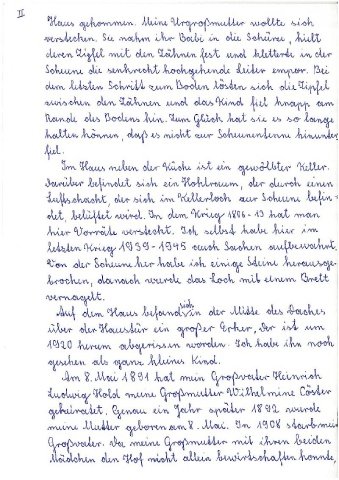 II
Haus gekommen. Meine Urgroßmutter wollte sich
verstecken. Sie nahm ihr Baby in die Schürze, hielt
deren Zipfel mit den Zähnen fest und kletterte in der
Scheune die senkrecht hochgehende Leiter empor. Bei
dem letzten Schritt zum Boden lösten sich die Zipfel
zwischen den Zähnen und das Kind fiel knapp am
Rande des Bodens hin. Zum Glück hat sie es so lange
halten können, daß es nicht zur Scheunentenne hinunter
fiel.
Im Haus neben der Küche ist ein gewölbter Keller.
Darüber befindet sich ein Hohlraum, der durch einen
Luftschacht, der sich im Kellerloch zur Scheune befin=
det, belüftet wird. In dem Krieg 1806-13 hat man
hier Vorräte versteckt. Ich selbst habe hier im
letzten Krieg 1939-1945 auch Sachen aufbewahrt.
Von der Scheune her habe ich einige Steine herausge-
brochen, danach wurde das Loch mit einem Brett
vernagelt.
Auf dem Haus befand sich in der Mitte des Daches
über der Haustür ein großer Erker, der ist um
1920 herum abgerissen worden. Ich habe ihn noch
gesehen als ganz kleines Kind.
Am 8. Mai 1891 hat mein Großvater Heinrich
Ludwig Hold meine Großmutter Wilhelmine Cöster
geheiratet. Genau ein Jahr später 1892 wurde
meine Mutter geboren am 8. Mai. In 1908 starb mein
Großvater. Da meine Großmutter mit ihren beiden
Mädchen den Hof nicht allein bewirtschaften konnte,